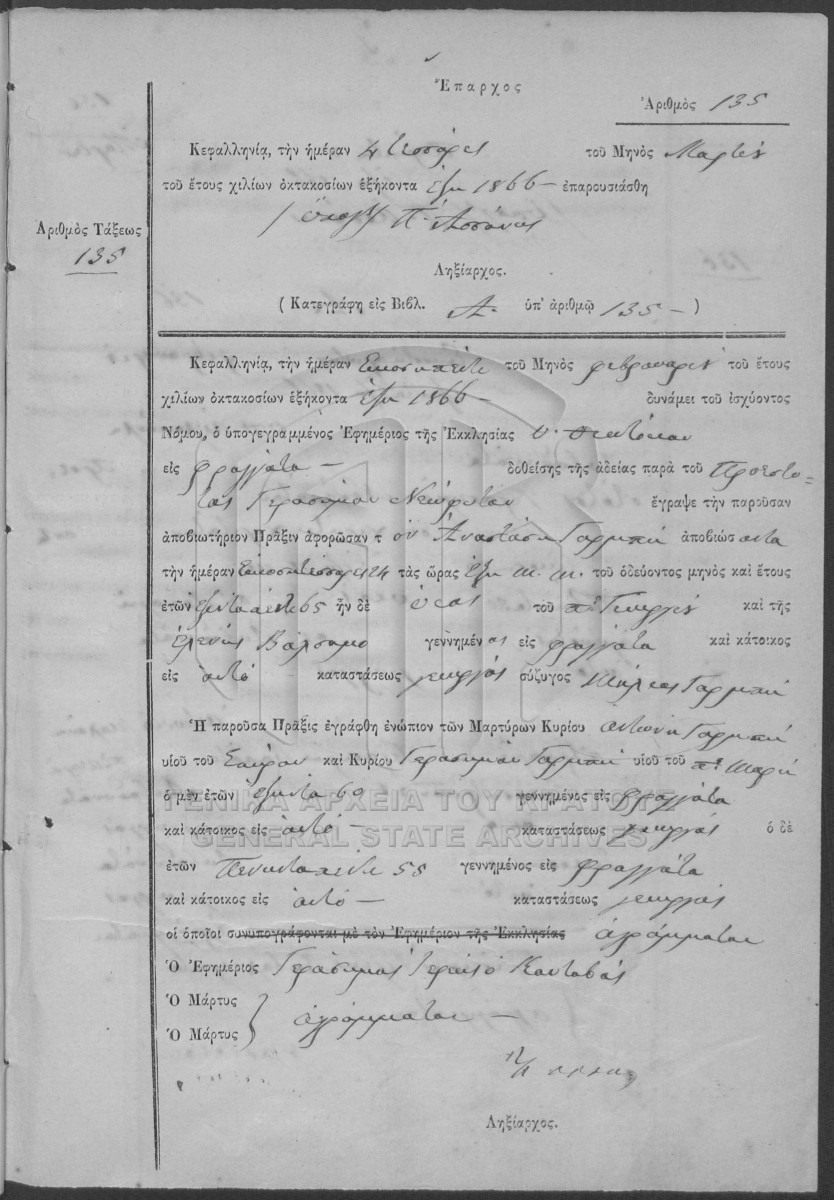 Ἔπαρχος
Ἀριθμὸς 135
Κεφαλληνίᾳ, τὴν ἡμέραν 4 τέσσαρες τοῦ Μηνὸς Μαρτίου
τοῦ ἔτους χιλίων ὀκτακοσίων ἑξήκοντα ἕξη 1866 — ἐπαρουσιάσθη
Ἀριθμὸς Τάξεως
135
Ληξίαρχος.
( Κατεγράφη εἰς Βιβλ. Α. ὑπ' ἀριθμῷ 135 — )
Κεφαλληνίᾳ, τὴν ἡμέραν Εἰκοσιπέντε τοῦ Μηνὸς φεβρουαρίου τοῦ ἔτους
χιλίων ὀκτακοσίων ἑξήκοντα ἕξη 1866 — δυνάμει τοῦ ἰσχύοντος
Νόμου, ὁ ὑπογεγραμμένος Ἐφημέριος τῆς Ἐκκλησίας
εἰς φραγγάτα — δοθείσης τῆς ἀδείας παρὰ τοῦ Πρωεστο-
τος Γερασίμου ἔγραψε τὴν παροῦσαν
ἀποβιωτήριον Πρᾶξιν ἀφορῶσαν τ ον Ἀναστάση Γαρμπή ἀποβιώσ αντα
τὴν ἡμέραν Εἰκοσιτέσσαρες 24 τὰς ὥρας ἕξη π. μ. τοῦ ὁδεύοντος μηνὸς καὶ ἔτους
ἐτῶν ἑξῆντα πέντε 65 ἦν δὲ ὑιος τοῦ πτ Γεωργίου καὶ τῆς
Ἑλένης Βάλσαμο γεννημέν ος εἰς φραγγάτα καὶ κάτοικος
εἰς ἀυτό καταστάσεως γεωργός σύζυγος Γαρμπή
Ἡ παροῦσα Πρᾶξις ἐγράφθη ἐνώπιον τῶν Μαρτύρων Κυρίου Αντώνη Γαρμπή
υἱοῦ τοῦ Σπύρου καὶ Κυρίου Γερασίμου Γαρμπή υἱοῦ τοῦ πτ Μαρή
ὁ μὲν ἐτῶν ἑξῆντα 60 γεννημένος εἰς φραγγάτα
ΓΕΝΙΚΑ ΑΡΧΕΙΑ ΤΟΥ ΚΡΑΤΟΥΣ
καὶ κάτοικος εἰς ἀυτό — καταστάσεως γεωργός ὁ δὲ
GENERAL STATE ARCHIVES
ἐτῶν Πενῆντα πέντε 55 γεννημένος εἰς φραγγάτα
καὶ κάτοικος εἰς ἀυτό — καταστάσεως γεωργός
οἱ ὁποῖοι συνυπογράφονται μὲ τὸν Ἐφημέριον τῆς Ἐκκλησίας ἀγράμματοι
Ὁ Ἐφημέριος Γεράσιμος Ἱερεύς ὁ
Ὁ Μάρτυς
Ὁ Μάρτυς ἀγράμματοι —
Ληξίαρχος.